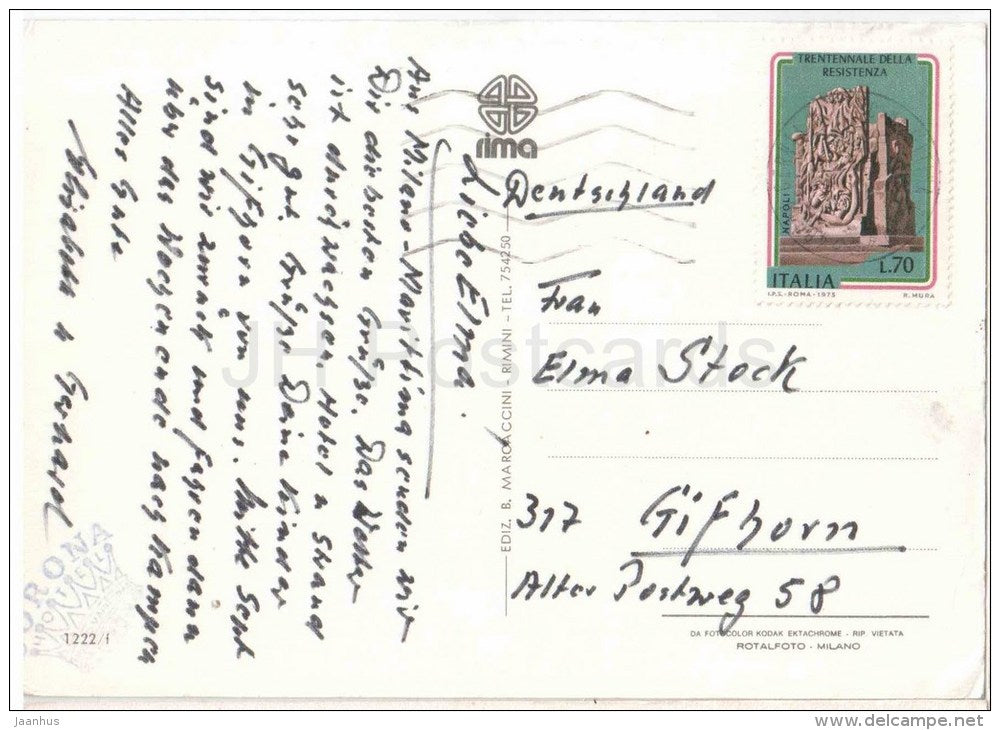 Liebe Elma.
Aus Milano-Marittima senden wir
Dir die besten Grüße. Das Wetter
ist durchwachsen. Hotel u Strand
sehr gut. Grüße Deine Kinder
in Gifhorn von uns. Mitte Sept
sind wir zurück und fahren dann
über das Wochenende nach Kampen
Alles Gute
u Gerhard
rima
Deutschland
Frau
Elma Stock
317 Gifhorn
Alter Postweg 58
TRENTENNALE DELLA
RESISTENZA
NAPOLI
ITALIA
L.70
I.P.S.-ROMA-1975
R. MURA
EDIZ. B. MARCACCINI - RIMINI - TEL. 754250
CORONA
1222/f
DA FOTOCOLOR KODAK EKTACHROME - RIP. VIETATA
ROTALFOTO - MILANO
JH Postcards
jaanhus
delcampe.net